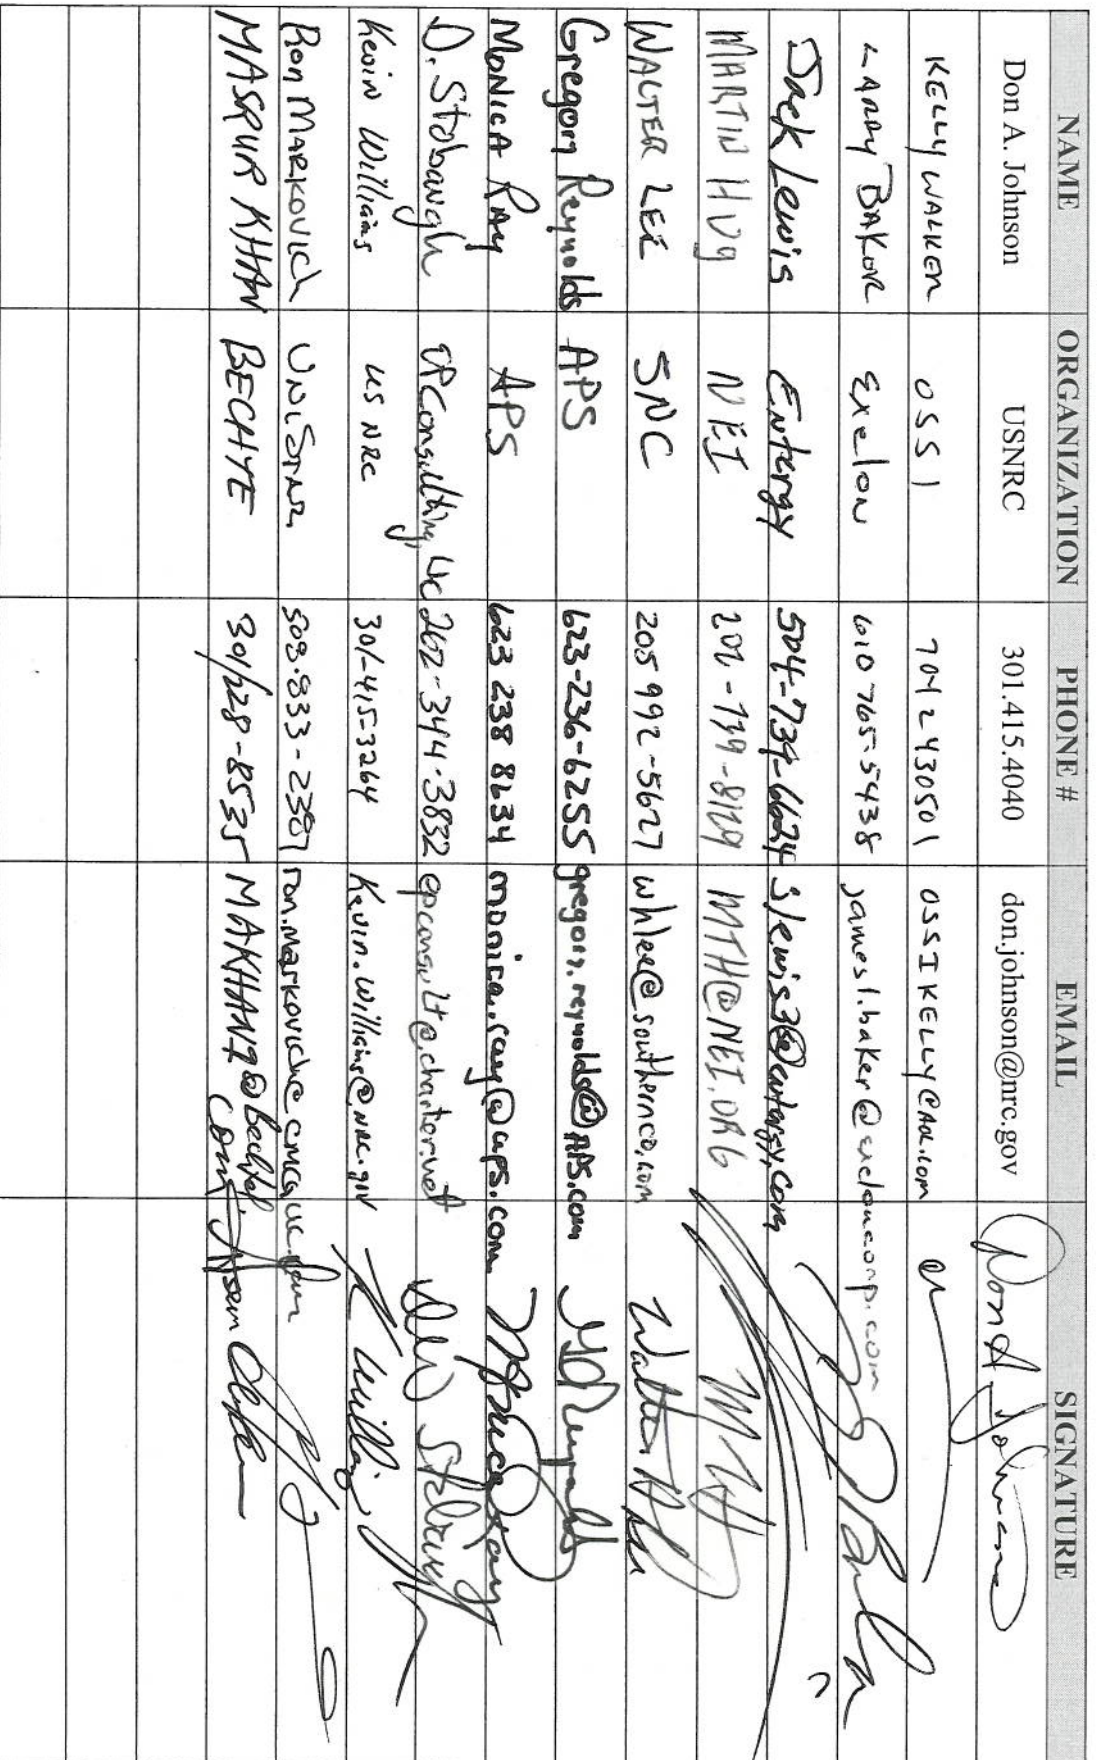 NAME ORGANIZATION PHONE # EMAIL SIGNATURE
Don A. Johnson USNRC 301.415.4040 don.johnson@nrc.gov Don A. Johnson
KELLY WALKER OSSI 704 2430501 OSSIKELLY@AOL.com
LARRY BAKER Exelon 610 765-5438 jamesl.baker@exeloncorp.com
Jack Lewis Entergy 504-739-6624 jlewis3@entergy.com
MARTIN HUG NEI 202-739-8129 MTH@NEI.ORG
WALTER LEE SNC 205 992-5627 whlee@southernco.com Walter Lee
Gregory Reynolds APS 623-236-6255 gregory.reynolds@APS.com
MONICA RAY APS 623 238 8234 monica.ray@aps.com Monica Ray
D. Stobaugh EPConsulting, LLC 202-344-3832 epconsult@charter.net Stobaugh
Kevin Williams US NRC 301-415-3264 Kevin.Williams@nrc.gov K Williams
Ron MARKOVICH UniStar 508-833-2307
MASRUR KHAN BECHTEL 301/228-8535 MAKHAN9@Bechtel
.com